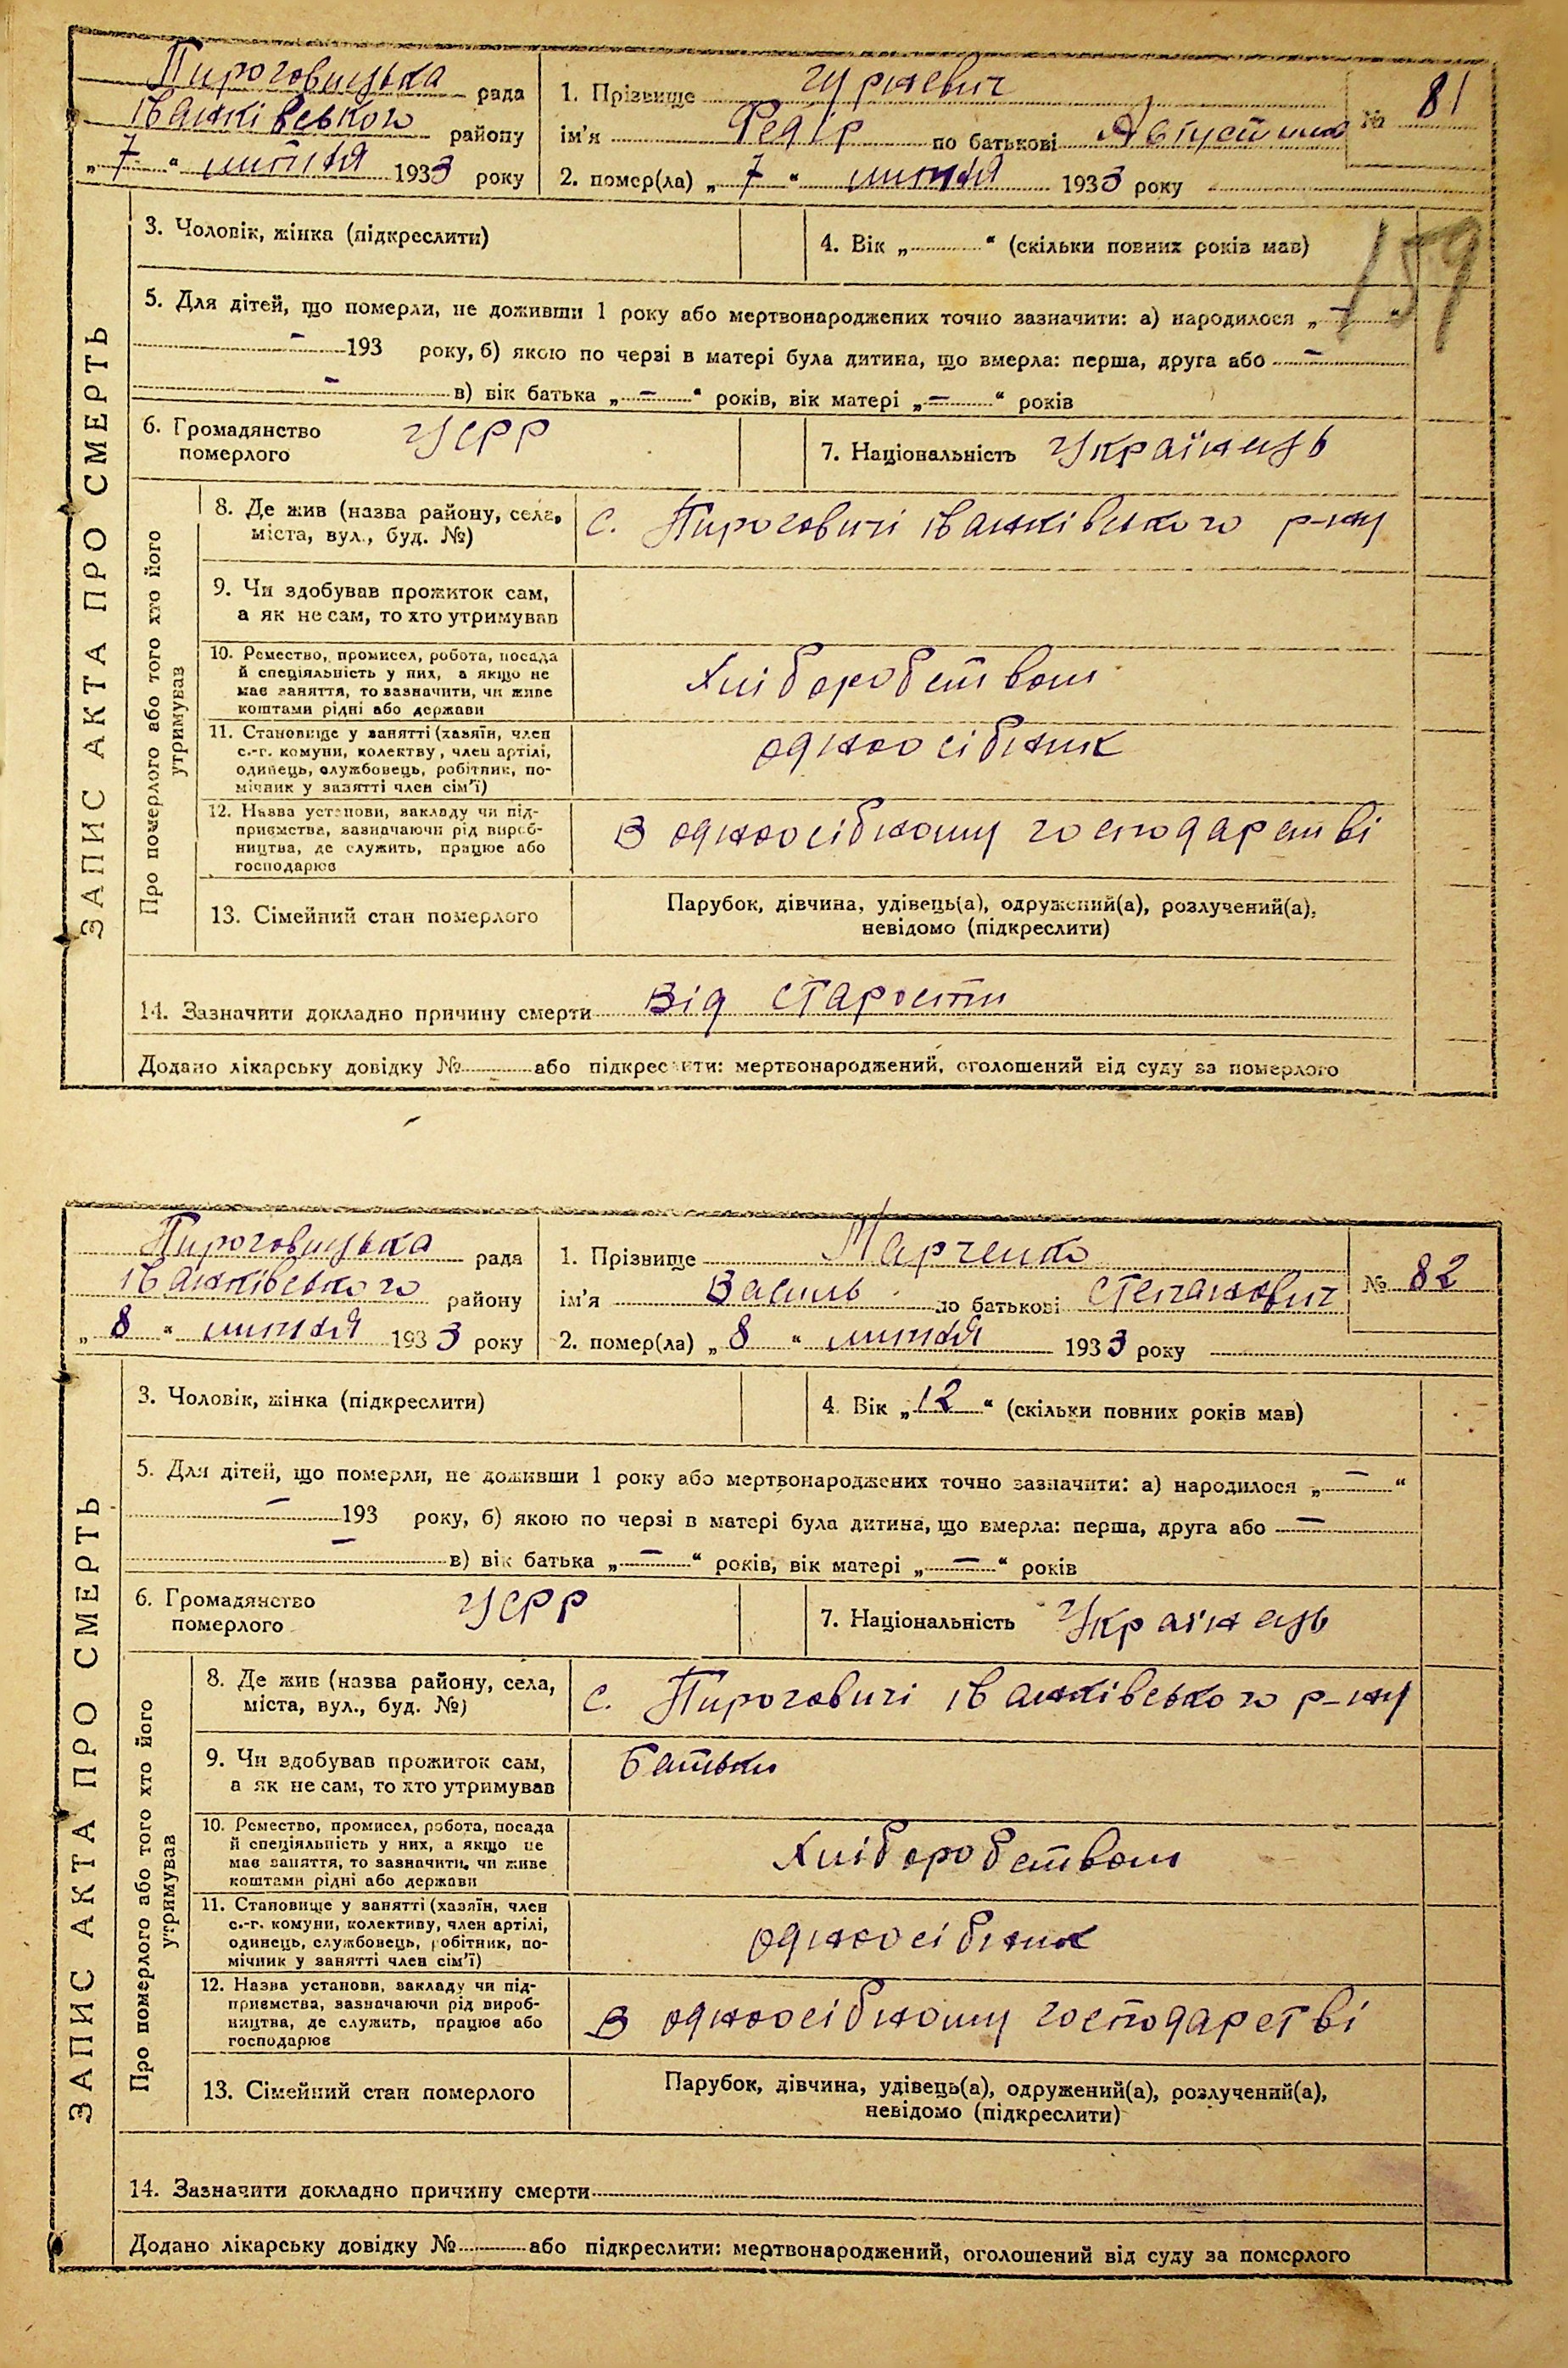 Пироговицька рада
Іванківського району
„ 7 “ липня 1933 року
1. Прізвище Гурневич
№ 81
ім'я Федір по батькові
2. помер(ла) „ 7 “ липня 1933 року
159
ЗАПИС АКТА ПРО СМЕРТЬ
3. Чоловік, жінка (підкреслити)
4. Вік „ “ (скільки повних років мав)
5. Для дітей, що померли, не доживши 1 року або мертвонароджених точно зазначити: а) народилося „ — “
— 193 року, б) якою по черзі в матері була дитина, що вмерла: перша, друга або —
— в) вік батька „ — “ років, вік матері „ — “ років
6. Громадянство померлого УСРР
7. Національність Українець
Про померлого або того хто його утримував
8. Де жив (назва району, села, міста, вул., буд. №) с. Пироговичі Іванківського р-ну
9. Чи здобував прожиток сам, а як не сам, то хто утримував
10. Ремество, промисел, робота, посада й спеціяльність у них, а якщо не має заняття, то зазначити, чи живе коштами рідні або держави Хліборобством
11. Становище у занятті (хазяїн, член с.-г. комуни, колектву, член артілі, одинець, службовець, робітник, помічник у занятті член сім'ї) одноосібник
12. Назва установи, закладу чи підприємства, зазначаючи рід виробництва, де служить, працює або господарює В одноосібному господарстві
13. Сімейний стан померлого
Парубок, дівчина, удівець(а), одружений(а), розлучений(а),
невідомо (підкреслити)
14. Зазначити докладно причину смерти Від старости
Додано лікарську довідку № або підкреслити: мертвонароджений, оголошений від суду за померлого
Пироговицька рада
Іванківського району
„ 8 “ липня 1933 року
1. Прізвище Марченко
№ 82
ім'я Василь по батькові Степанович
2. помер(ла) „ 8 “ липня 1933 року
ЗАПИС АКТА ПРО СМЕРТЬ
3. Чоловік, жінка (підкреслити)
4. Вік „ 12 “ (скільки повних років мав)
5. Для дітей, що померли, не доживши 1 року або мертвонароджених точно зазначити: а) народилося „ — “
— 193 року, б) якою по черзі в матері була дитина, що вмерла: перша, друга або —
— в) вік батька „ — “ років, вік матері „ — “ років
6. Громадянство померлого УСРР
7. Національність Українець
Про померлого або того хто його утримував
8. Де жив (назва району, села, міста, вул., буд. №) с. Пироговичі Іванківського р-ну
9. Чи здобував прожиток сам, а як не сам, то хто утримував Батьки
10. Ремество, промисел, робота, посада й спеціяльність у них, а якщо не має заняття, то зазначити, чи живе коштами рідні або держави Хліборобством
11. Становище у занятті (хазяїн, член с.-г. комуни, колективу, член артілі, одинець, службовець, робітник, помічник у занятті член сім'ї) одноосібник
12. Назва установи, закладу чи підприємства, зазначаючи рід виробництва, де служить, працює або господарює В одноосібному господарстві
13. Сімейний стан померлого
Парубок, дівчина, удівець(а), одружений(а), розлучений(а),
невідомо (підкреслити)
14. Зазначити докладно причину смерти
Додано лікарську довідку № або підкреслити: мертвонароджений, оголошений від суду за померлого